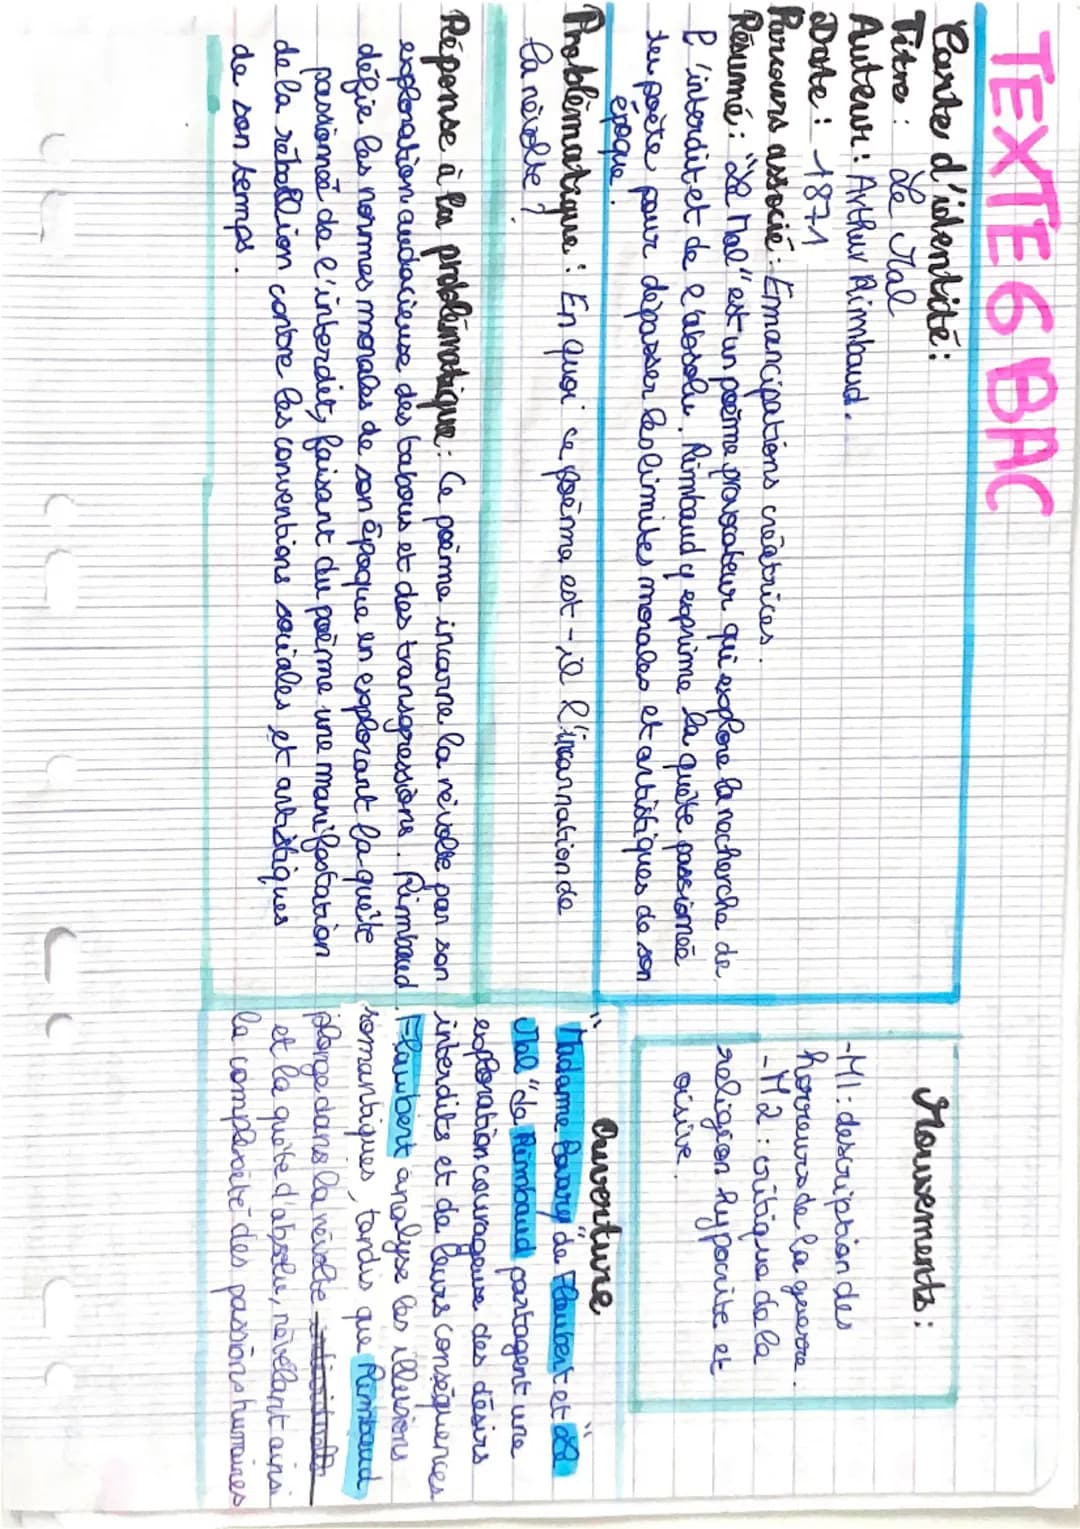 TEXTE 6 BAC
Carte d'identité :
Titre : Le Mal
Auteur : Arthur Rimbaud.
Date : 1871
Parcours associé : Emancipations créatrices.
Résumé : "Le Mal" est un poème provocateur qui explore la recherche de
l'interdit et de l'absolu. Rimbaud y exprime la quête passionée
du poète pour dépasser les limites morales et artistiques de son
époque.
Problématique : En quoi ce poème est-il l'incarnation de
la révolte ?
Réponse à la problématique : Ce poème incarne la révolte par son
exploration audacieuse des tabous et des transgressions. Rimbaud
défie les normes morales de son époque en explorant la quête
passionnée de l'interdit, faisant du poème une manifestation
de la rébellion contre les conventions sociales et artistiques
de son temps.
Mouvements :
-M1 : description des
horreurs de la guerre.
-M2 : critique de la
religion hypocrite et
oisive.
Ouverture
"Madame Bovary" de Flaubert et "Le
Mal" de Rimbaud partagent une
exploration courageuse des désirs
interdits et de leurs conséquences
. Flaubert analyse les illusions
romantiques, tandis que Rimbaud
plonge dans la révolte
et la quête d'absolu, révélant ainsi
la complexité des passions humaines